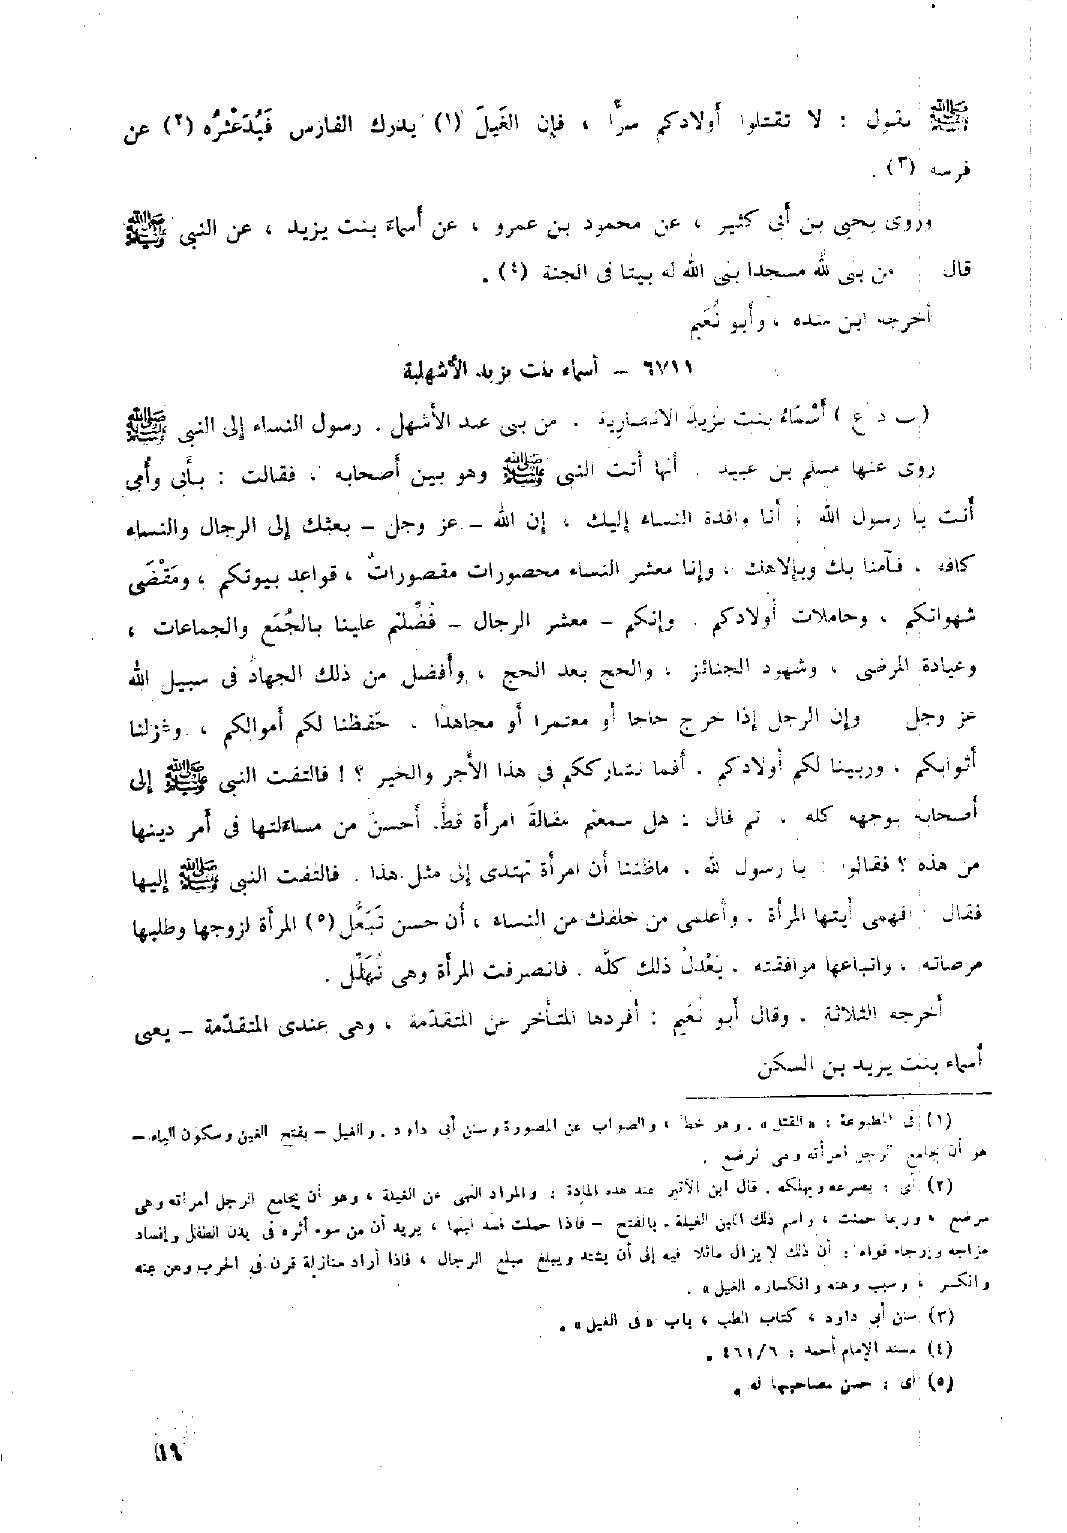 ﷺ يقول : لا تقتلوا أولادكم سرًّا ، فإن الغَيلَ (١) يدرك الفارس فَيُدَعْثرُه (٢) عن
فرسه (٣) .
وروى يحيى بن أبى كثير ، عن محمود بن عمرو ، عن أسماءَ بنت يزيد ، عن النبى ﷺ
قال من بنى لله مسجدا بنى الله له بيتا فى الجنة (٤) .
أخرجه ابن منده ، وأبو نُعَيم
٦٧١١ – أسماء بنت يزيد الأشهلية
( ب د ع ) أَسْمَاءُ بنت يَزيدَ الأنصارية . من بنى عبد الأشهل . رسول النساء إلى النبى ﷺ
روى عنها مسلم بن عبيد . أنها أتت النبى ﷺ وهو بين أصحابه ، فقالت : بأبى وأمى
أنت يا رسول الله ، أنا وافدة النساء إليك ، إن الله – عز وجل – بعثك إلى الرجال والنساء
كافه . فآمنا بك وبإلاهك ، وإنا معشر النساء محصورات مقصوراتٌ ، قواعد بيوتكم ، ومَقْضَى
شهواتكم ، وحاملات أولادكم . وإنكم – معشر الرجال – فُضِّلتم علينا بالجُمَع والجماعات ،
وعيادة المرضى ، وشهود الجنائز ، والحج بعد الحج ، وأفضل من ذلك الجهادُ فى سبيل الله
عز وجل وإن الرجل إذا خرج حاجا أو معتمرا أو مجاهدًا . حَفظنا لكم أموالكم ، وغزلنا
أثوابكم . وربينا لكم أولادكم . أفما نشارككم فى هذا الأجر والخير ؟ ! فالتفت النبى ﷺ إلى
أصحابه بوجهه كله . ثم قال : هل سمعتم مقالةَ امرأة قطُّ. أحسنَ من مساءلتها فى أمر دينها
من هذه ؟ فقالوا : يا رسول لله . ماظننا أن امرأة تهتدى إلى مثل هذا . فالتفت النبى ﷺ إليها
فقال : افهمى أيتها المرأة . وأعلمى من خلفك من النساء ، أن حسن تَبَعُّل (٥) المرأة لزوجها وطلبها
مرضاته ، واتباعها موافقته . يَعْدلُ ذلك كلَّه . فانصرفت المرأة وهى تُهَلِّل .
أخرجه الثلاثة . وقال أبو نُعَيم : أفردها المتأخر عن المتقدّمة ، وهى عندى المتقدّمة – يعنى
أسماء بنت يزيد بن السكن
(١) فى المطبوعة : «القتل» . وهو خطأ ، والصواب عن المصورة وسنن أبى داود . والغيل – بفتح الغين وسكون الياء –
هو أن يجامع الرجل امرأته وهى ترضع .
(٢) أى : يصرعه ويهلكه . قال ابن الأثير عند هذه المادة : والمراد النهى عن الغيلة ، وهو أن يجامع الرجل امرأته وهى
مرضع ، وربما حملت ، واسم ذلك اللبن الغيلة . بالفتح – فاذا حملت فسد لبنها ، يريد أن من سوء أثره فى بدن الطفل وإفساد
مزاجه وإرخاء قواه : أن ذلك لا يزال ماثلا فيه إلى أن يشتد ويبلغ مبلغ الرجال ، فاذا أراد منازلة قرن فى الحرب وهن عنه
وانكسر ، وسبب وهنه وانكساره الغيل» .
(٣) سنن أبى داود ، كتاب الطب ، باب « فى الغيل » .
(٤) مسند الإمام أحمد : ٤٦١/٦ .
(٥) أى : حسن مصاحبتها له .
١٩